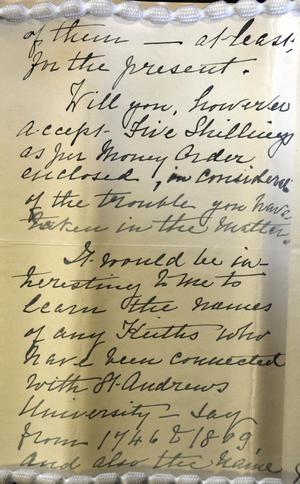 of them — at least,
for the present.
Will you, however
accept Five Shillings
as per Money Order
enclosed, in considerati
of the trouble you have
taken in the matter.
It would be in-
teresting to me to
learn the names
of any Keiths who
have been connected
with St. Andrews
University — say
from 1746 to 1809,
and also the name